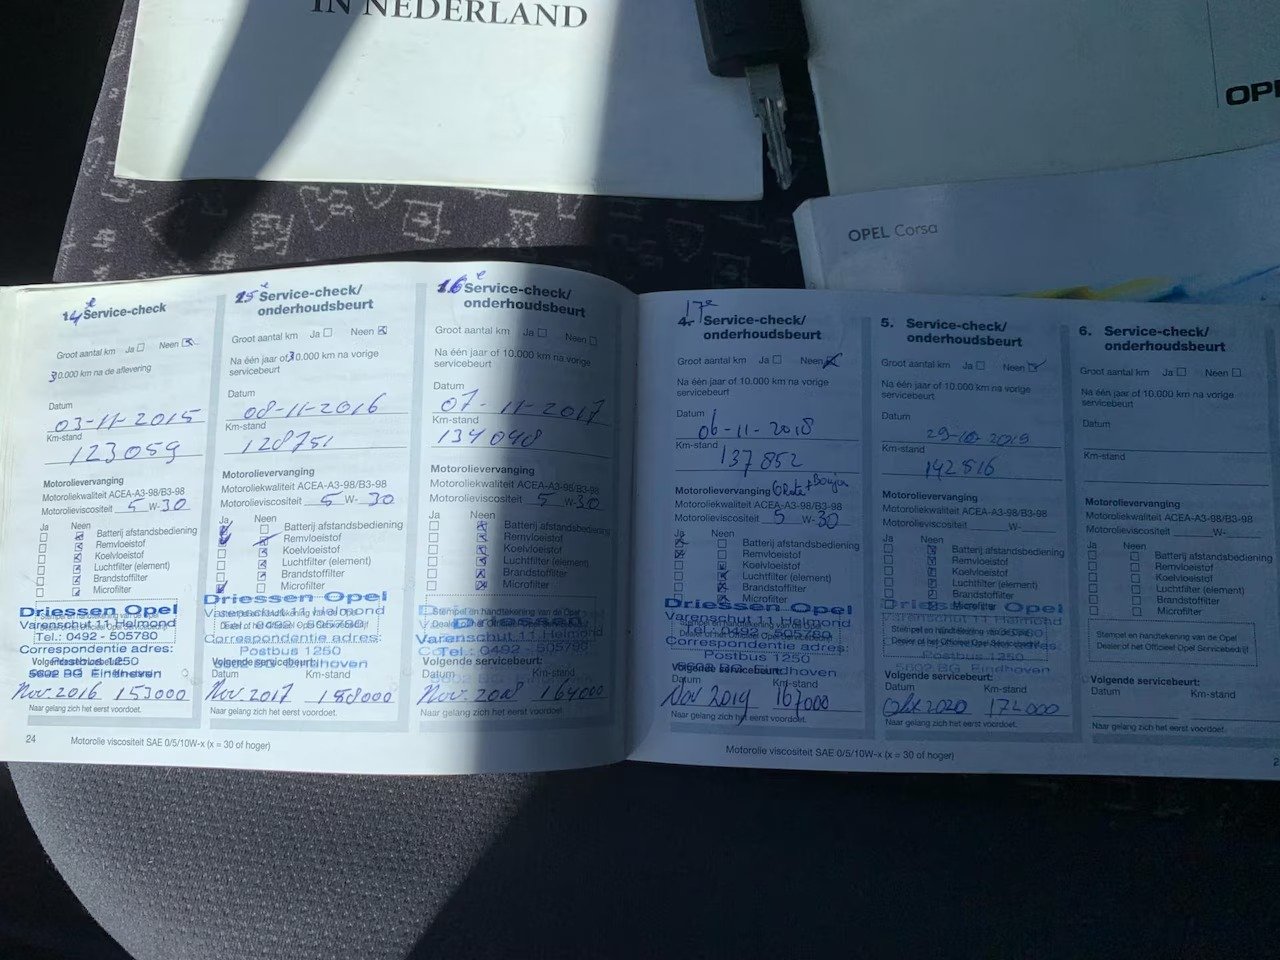 IN NEDERLAND
OPE
OPEL Corsa
14e Service-check
Groot aantal km Ja Neen
30.000 km na de aflevering
Datum
03-11-2015
Km-stand
123059
Motorolievervanging
Motoroliekwaliteit ACEA-A3-98/B3-98
Motorolieviscositeit 5 W-30
Ja Neen
Batterij afstandsbediening
Remvloeistof
Koelvloeistof
Luchtfilter (element)
Brandstoffilter
Microfilter
Driessen Opel
Varenschut 11 Helmond
Tel.: 0492 - 505780
Correspondentie adres:
Postbus 1250
5602 BG Eindhoven
Volgende servicebeurt:
Nov 2016 153000
Naar gelang zich het eerst voordoet.
24
Motorolie viscositeit SAE 0/5/10W-x (x = 30 of hoger)
15e Service-check/
onderhoudsbeurt
Groot aantal km Ja Neen
Na één jaar of 30.000 km na vorige
servicebeurt
Datum
08-11-2016
Km-stand
128751
Motorolievervanging
Motoroliekwaliteit ACEA-A3-98/B3-98
Motorolieviscositeit 5 W-30
Ja Neen
Batterij afstandsbediening
Remvloeistof
Koelvloeistof
Luchtfilter (element)
Brandstoffilter
Microfilter
Driessen Opel
Varenschut 11 Helmond
Correspondentie adres:
Postbus 1250
Volgende servicebeurt:
Datum Km-stand
Nov 2017 158000
Naar gelang zich het eerst voordoet.
16e Service-check/
onderhoudsbeurt
Groot aantal km Ja Neen
Na één jaar of 10.000 km na vorige
servicebeurt
Datum
07-11-2017
Km-stand
134048
Motorolievervanging
Motoroliekwaliteit ACEA-A3-98/B3-98
Motorolieviscositeit 5 W-30
Ja Neen
Batterij afstandsbediening
Remvloeistof
Koelvloeistof
Luchtfilter (element)
Brandstoffilter
Microfilter
Stempel en handtekening van de Opel
Varenschut 11 Helmond
Volgende servicebeurt:
Datum Km-stand
Nov 2018 164000
Naar gelang zich het eerst voordoet.
17e
4. Service-check/
onderhoudsbeurt
Groot aantal km Ja Neen
Na één jaar of 10.000 km na vorige
servicebeurt
Datum
06-11-2018
Km-stand
137852
Motorolievervanging
Motoroliekwaliteit ACEA-A3-98/B3-98
Motorolieviscositeit 5 W-30
Ja Neen
Batterij afstandsbediening
Remvloeistof
Koelvloeistof
Luchtfilter (element)
Brandstoffilter
Microfilter
Driessen Opel
Varenschut 11 Helmond
Correspondentie adres:
Postbus 1250
Volgende servicebeurt:
Datum Km-stand
Nov 2019 167000
Naar gelang zich het eerst voordoet.
Motorolie viscositeit SAE 0/5/10W-x (x = 30 of hoger)
5. Service-check/
onderhoudsbeurt
Groot aantal km Ja Neen
Na één jaar of 10.000 km na vorige
servicebeurt
Datum
29-10-2019
Km-stand
142516
Motorolievervanging
Motoroliekwaliteit ACEA-A3-98/B3-98
Motorolieviscositeit W-
Ja Neen
Batterij afstandsbediening
Remvloeistof
Koelvloeistof
Luchtfilter (element)
Brandstoffilter
Microfilter
Driessen Opel
Stempel en handtekening van de Opel
Dealer of het Officieel Opel Servicebedrijf
Postbus 1250
5602 BG Eindhoven
Volgende servicebeurt:
Datum Km-stand
2020 172000
Naar gelang zich het eerst voordoet.
6. Service-check/
onderhoudsbeurt
Groot aantal km Ja Neen
Na één jaar of 10.000 km na vorige
servicebeurt
Datum
Km-stand
Motorolievervanging
Motoroliekwaliteit ACEA-A3-98/B3-98
Motorolieviscositeit W-
Ja Neen
Batterij afstandsbediening
Remvloeistof
Koelvloeistof
Luchtfilter (element)
Brandstoffilter
Microfilter
Stempel en handtekening van de Opel
Dealer of het Officieel Opel Servicebedrijf
Volgende servicebeurt:
Datum Km-stand
Naar gelang zich het eerst voordoet.
2